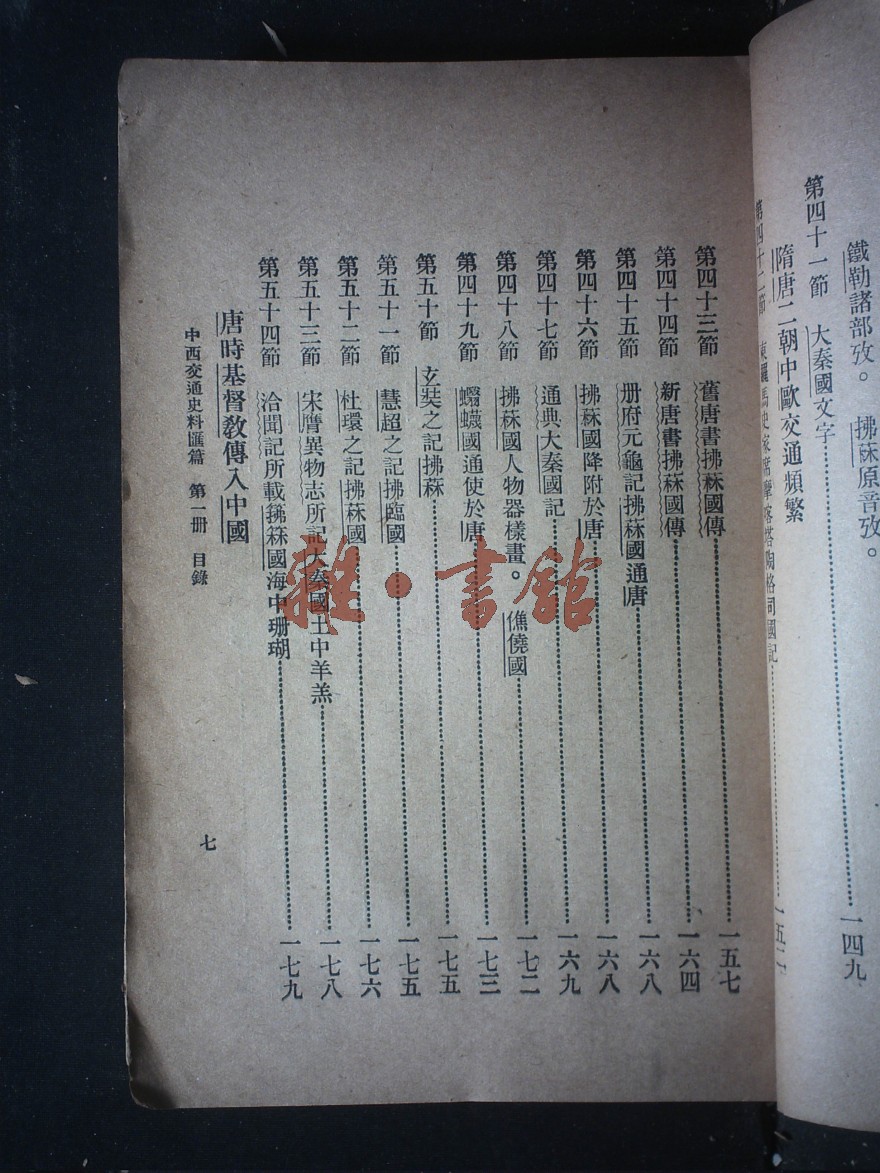 鐵勒諸部攷。 拂菻原音攷。
第四十一節 大秦國文字 一四九
隋唐二朝中歐交通頻繁
第四十二節 東羅馬史家席摩喀塔陶格司國記 一五二
第四十三節 舊唐書拂菻國傳 一五七
第四十四節 新唐書拂菻國傳 一六四
第四十五節 册府元龜記拂菻國通唐 一六八
第四十六節 拂菻國降附於唐 一六八
第四十七節 通典大秦國記 一六九
第四十八節 拂菻國人物器樣畫。 僬僥國 一七二
第四十九節 蠮蠛國通使於唐 一七三
第五十節 玄奘之記拂菻 一七五
第五十一節 慧超之記拂臨國 一七五
第五十二節 杜環之記拂菻國 一七六
第五十三節 宋膺異物志所記大秦國土中羊羔 一七八
第五十四節 洽聞記所載𢐅箖國海中珊瑚 一七九
唐時基督敎傳入中國
中西交通史料匯篇 第一册 目錄 七
雜·書館